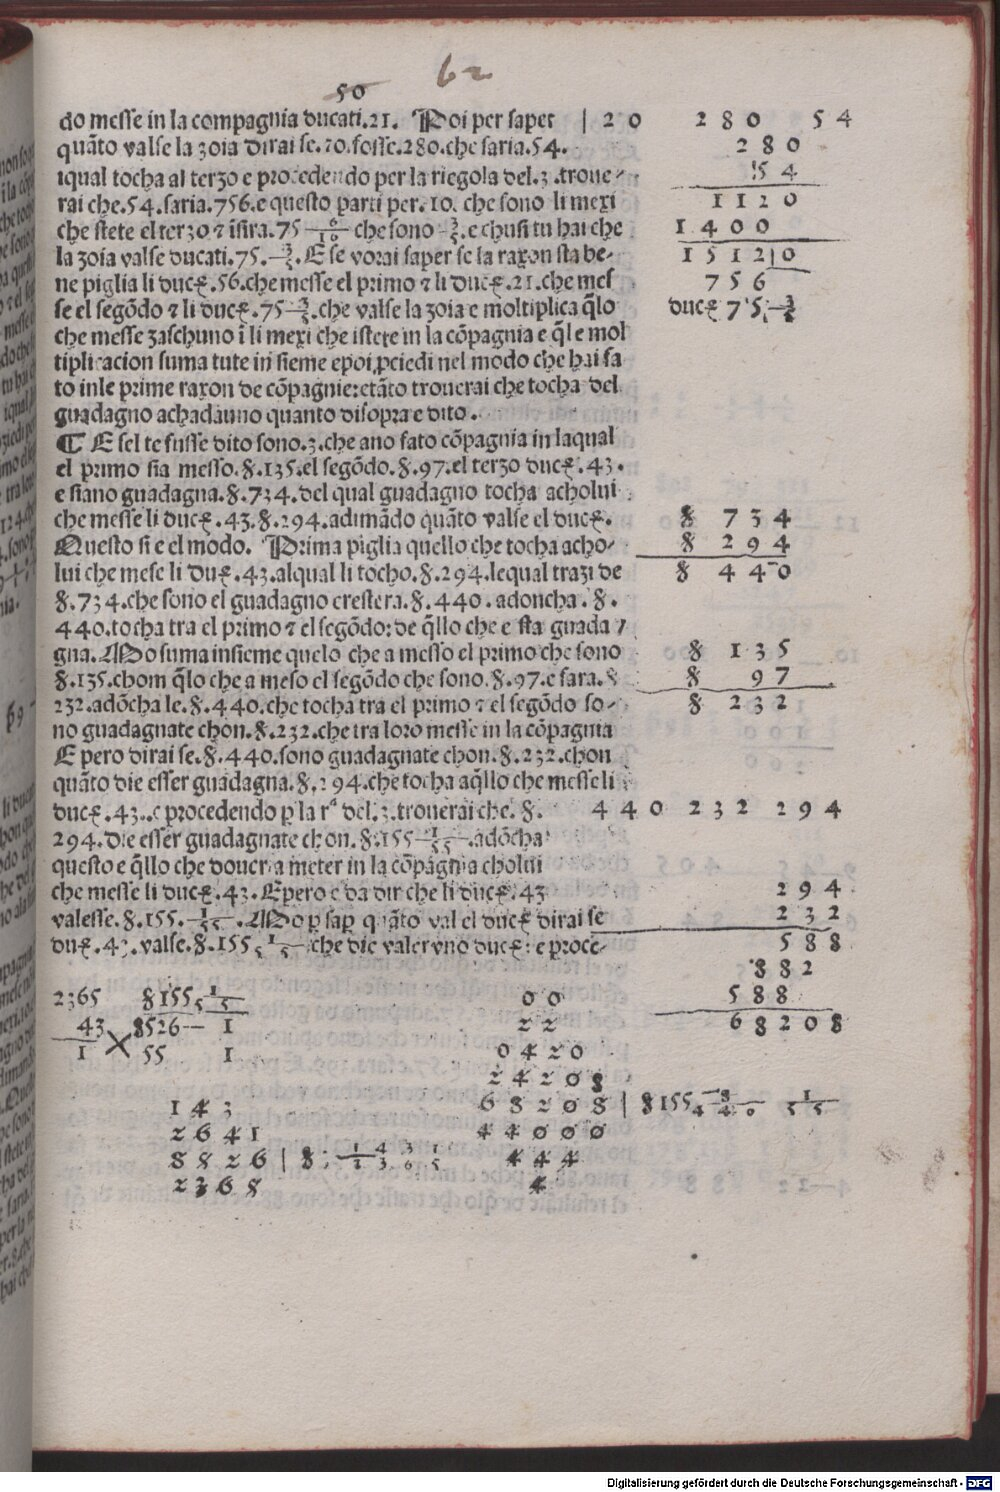 62
50
do messe in la compagnia ducati.21. Poi per saper | 20 280 54
quãto valse la zoia dirai se.20.fosse.280.che saria.54. 280
iqual tocha al terzo e procedendo per la riegola del.3.troue- 54
rai che.54.saria.756.e questo parti per.10. che sono li mexi 1120
che stete el terzo ⁊ isira.75 che sono .e chusi tu hai che 1400
la zoia valse ducati.75. E se vorai saper se la raxon sta be- 1512|0
ne piglia li ducҙ.56.che messe el primo ⁊ li ducҙ.21.che mes 756
se el segõdo ⁊ li ducҙ.75 .che valse la zoia e moltiplica q̃lo ducҙ 75
che messe zaschuno ĩ li mexi che istete in la cõpagnia e q̃l e mol
tiplicacion suma tute insieme epoi ꝓciedi nel modo che hai fa
to inle prime raxon de cõpagnie:etãto trouerai che tocha del
guadagno achadauno quanto disopra e dito.
¶ E sel te fusse dito sono.3.che ano fato cõpagnia in laqual
el primo sia messo.8.135.el segõdo.8.97.el terzo ducҙ.43.
e siano guadagna.8.734.del qual guadagno tocha acholui
che messe li ducҙ.43.8.294.adimãdo quãto valse el ducҙ. 8 734
Questo si e el modo. Prima piglia quello che tocha acho- 8 294
lui che mese li duҙ.43.alqual li tocho.8.294.lequal trazi de 8 440
8.734.che sono el guadagno crestera.8.440.adoncha.8.
440.tocha tra el primo ⁊ el segõdo:de q̃llo che e sta guada ⁊
gna. Mo suma insieme quelo che a messo el primo che sono 8 135
8.135.chom q̃lo che a meso el segõdo che sono.8.97.e sara.8 8 97
232.adõcha le.8.440.che tocha tra el primo ⁊ el segõdo so- 8 232
no guadagnate chon.8.232.che tra loro messe in la cõpagnia
E pero dirai se.8.440.sono guadagnate chon.8.232.chon
quãto die esser guadagna.8.294.che tocha aq̃llo che messe li
ducҙ.43..e procedendo p la rª del.3.trouerai che.8. 440 232 294
294.die esser guadagnate chon.8.155 1/55 .adõcha
questo e q̃llo che doueria meter in la cõpagnia cholui
che messe li ducҙ.43. Epero e da dir che li ducҙ.43 294
valesse.8.155. 1/55 . Mo p sap quãto val el ducҙ dirai se 232
duҙ.43.valse.8.155 1/55 che die valer vno ducҙ:e proce- 588
882
2365 8155 1/55 00 588
43 8526 — 1 22 68208
1 55 1 0420
24208
143 68208 | 8155 8/440 1/55
2641 44000
8826 | 8 444
2368 4
Digitalisierung gefördert durch die Deutsche Forschungsgemeinschaft - DFG